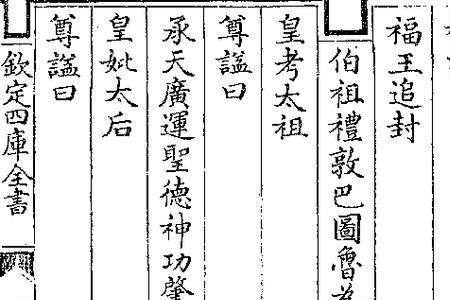 福王追封
伯祖禮敦巴圖魯為
皇考太祖
尊諡曰
承天廣運聖德神功肇
皇妣太后
尊諡曰
欽定四庫全書